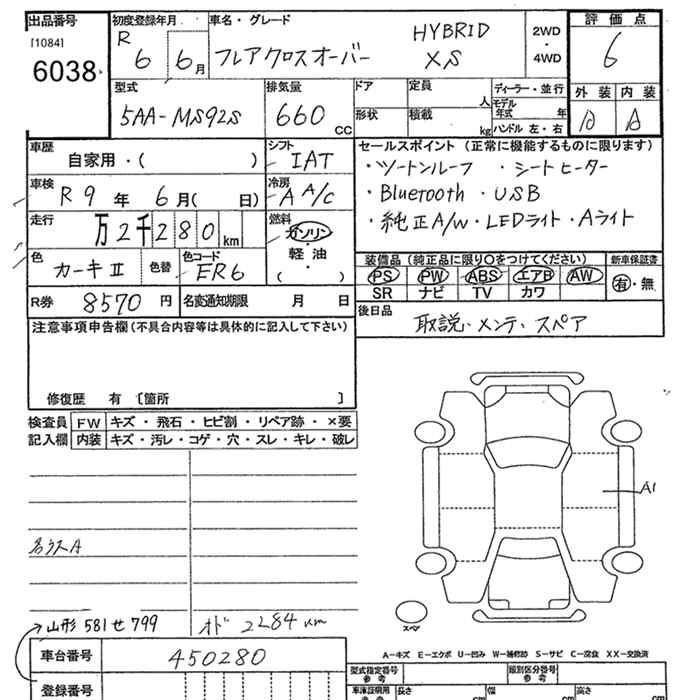 出品番号
[1084]
6038
初度登録年月
R 6 6月
車名・グレード
フレアクロスオーバー
HYBRID
XS
2WD
・
4WD
評価点
6
外装 内装
A A
型式
5AA-MS92S
排気量
660 CC
ドア
形状
定員 人
積載 kg
ディーラー・並行
モデル年式 年式
ハンドル 左・右
車歴
自家用・( )
シフト
IAT
車検
R 9 年 6 月( 日)
冷房
A A/C
走行
万2千280 km
燃料
ガソリン
軽・油
・
( )
色
カーキⅡ
色替
色コード
ER6
R券 8570 円
名変通知期限 月 日
セールスポイント (正常に機能するものに限ります)
・ツートンルーフ ・シートヒーター
・Bluetooth ・USB
・純正A/W・LEDライト・Aライト
装備品 (純正品に限り○をつけてください)
PS PW ABS エアB AW
SR ナビ TV カワ
新車保証書
有・無
後日品
取説・メンテ・スペア
注意事項申告欄(不具合内容等は具体的に記入して下さい)
修復歴 有 〔箇所 〕
検査員記入欄
FW キズ・飛石・ヒビ割・リペア跡・×要
内装 キズ・汚レ・コゲ・穴・スレ・キレ・破レ
→山形 581 せ 799
オド 2284 km
車台番号 450280
登録番号
A1
スペア
A-キズ E-エクボ U-凹み W-補修跡 S-サビ C-腐食 XX-交換済
型式指定番号
参考
類別区分番号
参考
車庫証明用
参考
長さ cm
幅 cm
高さ cm